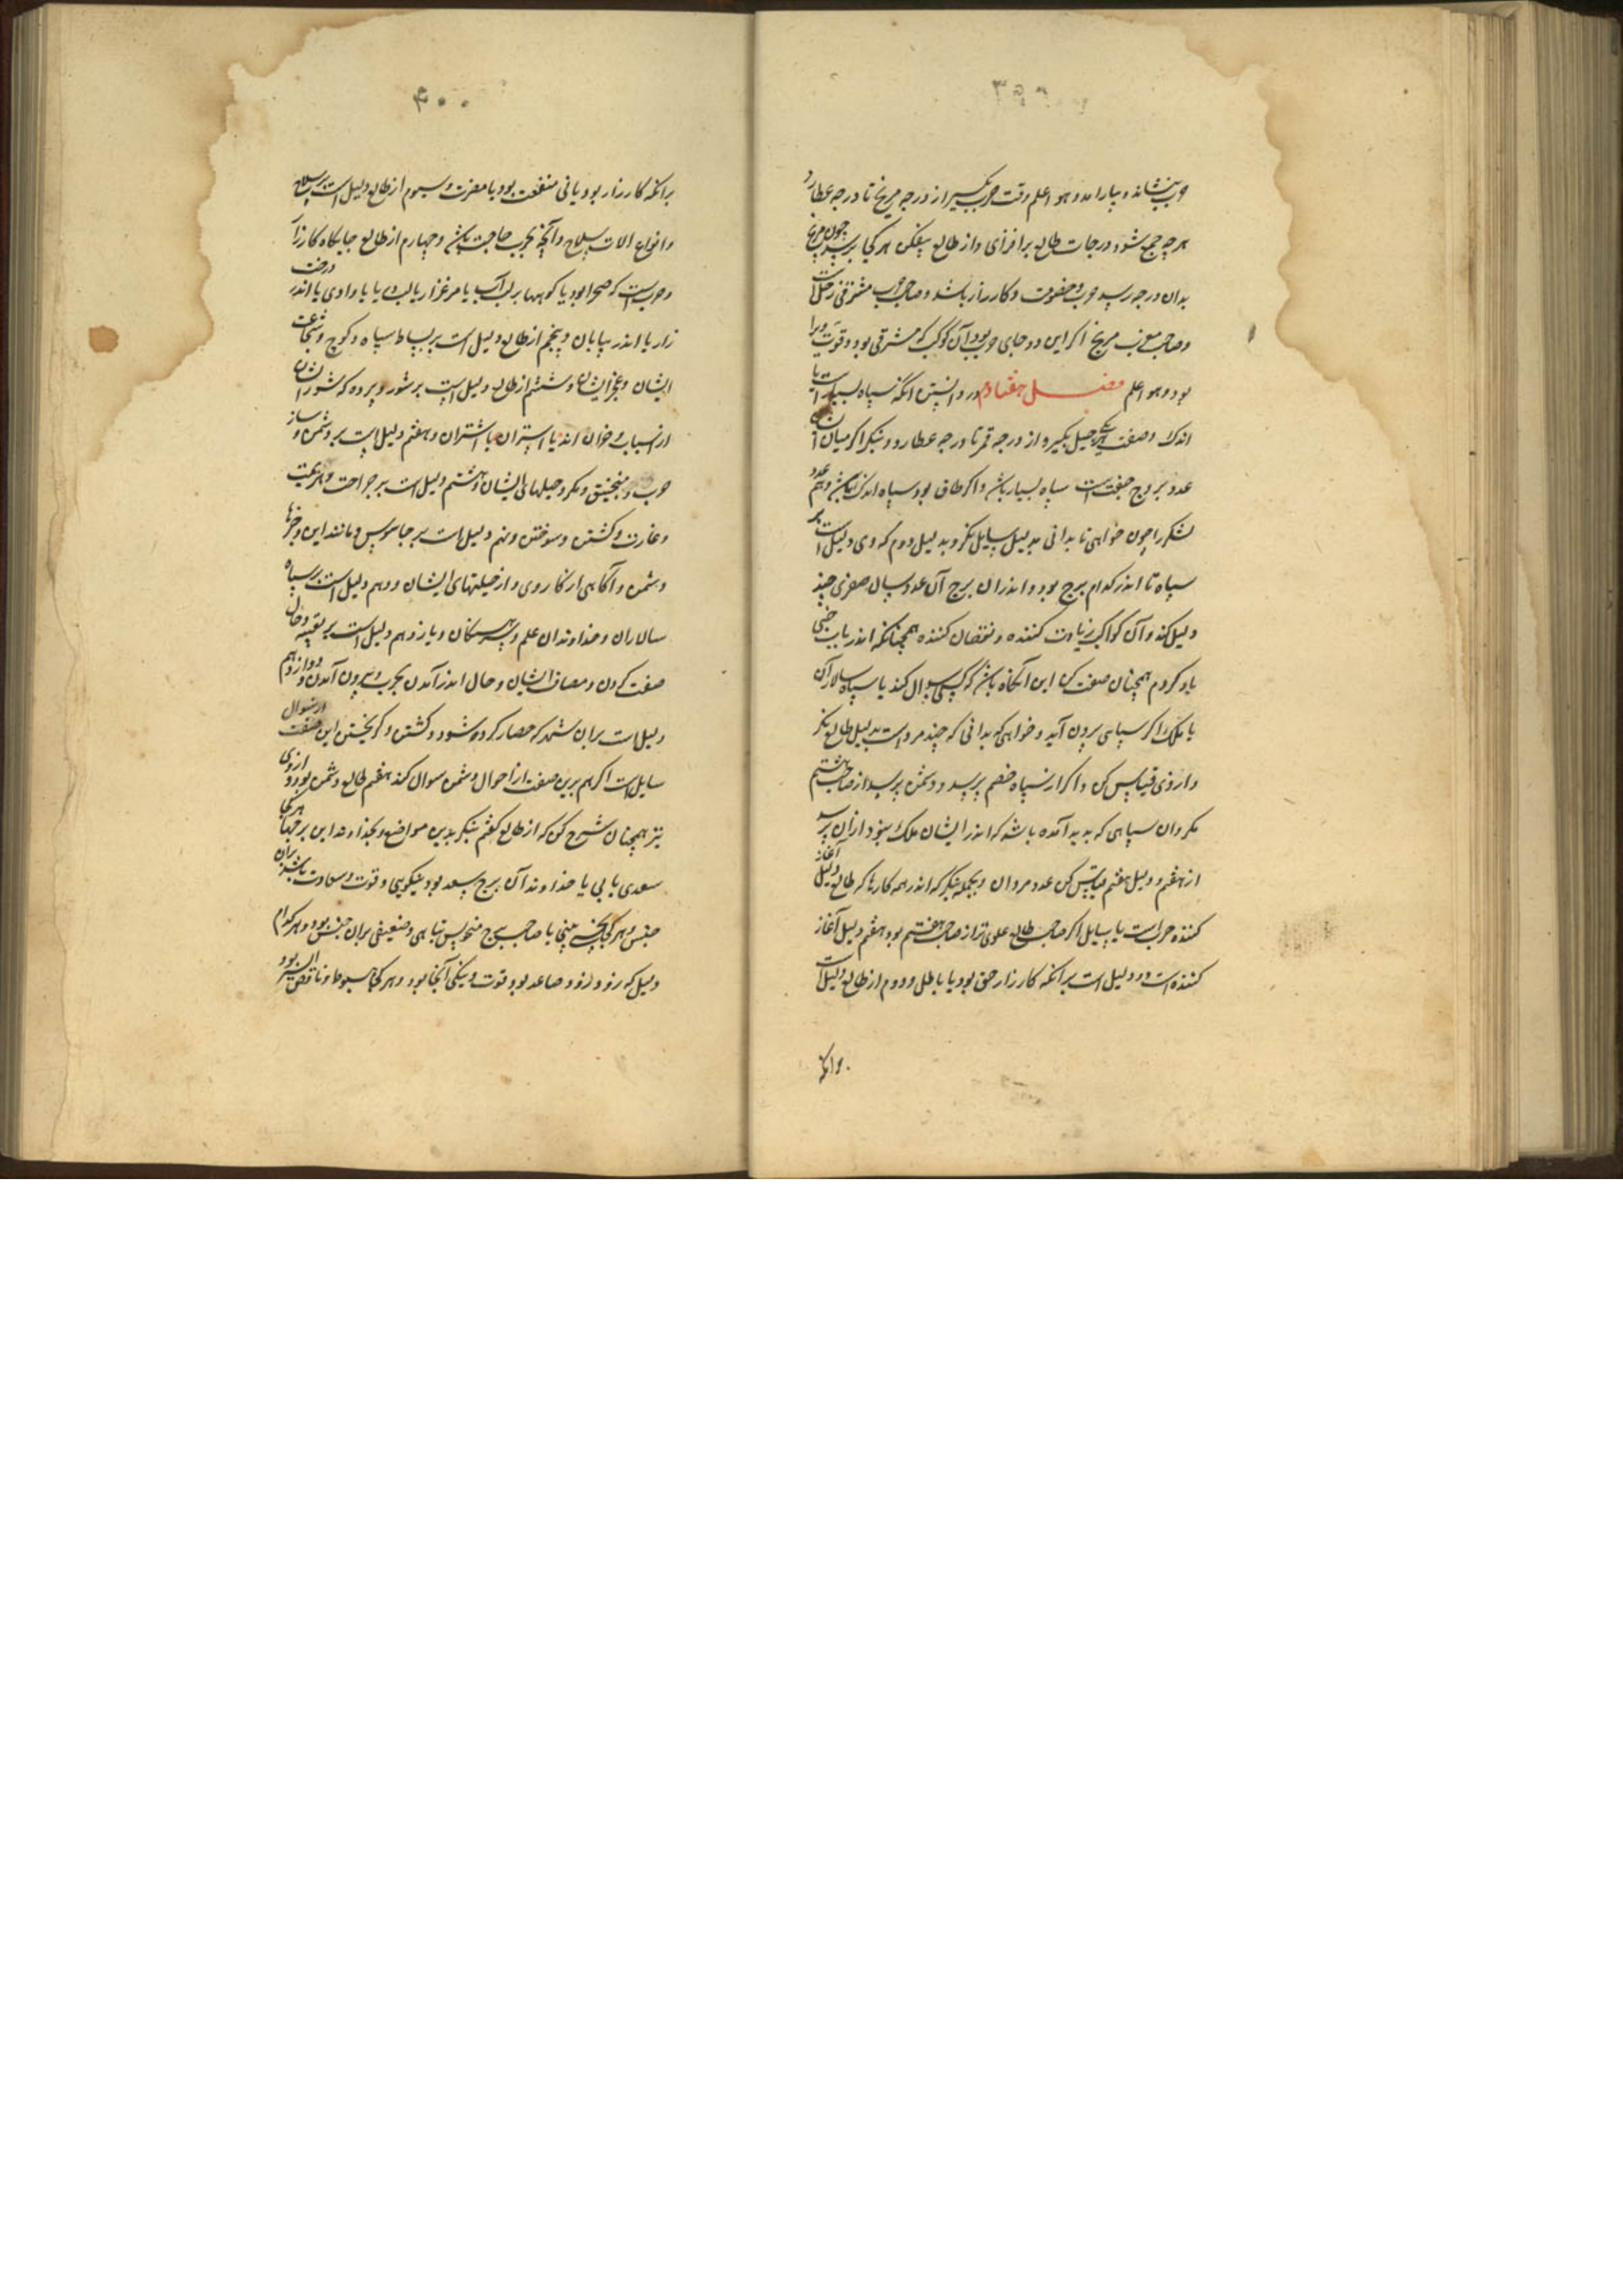 ۳۹۹
حرب بنشاند و بیارامد و هو اعلم وقت حرب بگیر از درجه مریخ تا درجه عطارد
هر چه جمع شود درجات طالع برافزای و از طالع بیفکن هر کجا برسد چون مریخ
بدان درجه رسد حرب و خصومت و کارزار باشد و صاحب حرب مشرقی زحل است
و صاحب مغرب مریخ اگر این دو جای حرب بود آن کوکب که مشرقی بود و قوت ویرا
بود و هو اعلم فصل هفتادم در دانستن انکه سپاه بسیار است یا
اندک وصفت بگیر از درجه قمر تا درجه عطارد و بنگر اگر میان
عدد بروج جفت است سپاه بسیار باشد و اگر طاق بود سپاه اندک باشد و هم عدد
لشکر را چون خواهی تا بدانی بدلیل سایل نگر و بدلیل دوم که وی دلیل است بر
سپاه تا اندر کدام برج بود و اندران برج آن عدد سال صغری چند
دلیل کند و آن کواکب زیادت کننده و نقصان کننده همچنانکه اندر باب خبی
یاد کردم همچنان صفت کن این آنگاه باشد که کسی سوال کند یا سپاه سالار آن
یا ملک اگر سپاهی برون آید و خواهی که بدانی که چند مرد است بدلیل طالع نگر
و از وی قیاس کن و اگر از سپاه خصم پرسد و دشمن پرسد از صاحب هشتم
مگر دان سپاهی که پدید آمده باشد که اندر ایشان ملک بنود از آن پرسد
از هفتم و دلیل هفتم قیاس کن عدد مردان و بجمله بنگر که اندر همه کارها که طالع دلیل آغاز
کننده حرب است یا سایل اگر صاحب طالع علوی تر از صاحب هفتم بود هفتم دلیل آغاز
کننده است و دلیل است برانکه کارزار حق بود یا باطل و دوم از طالع دلیل است
برانکه
۴۰۰
برانکه کارزار بود یا نی منفعت بود یا مضرت و سیوم از طالع دلیل است بر سلاح
و انواع الات سلاح و آنچه بحرب حاجت باشد و چهارم از طالع جایگاه کارزار
و حرب است که صحرا بود یا کوهها بر لب آب یا مرغزار یا لب دریا یا وادی یا اندر درخت
زار یا اندر بیابان و پنجم از طالع دلیل است بر بساط سپاه و کوچ و شجاعت
ایشان و عجز ایشان و ششم از طالع دلیل است بر ستور و برده که ستوران
از اسبان و خران اند یا استران یا اشتران و هفتم دلیل است بر دشمن و ساز
حرب و منجنیق و مکر و حیلهای ایشان و هشتم دلیل است بر جراحت و هزیمت
و غارت و کشتن و سوختن و نهم دلیل است بر جاسوس و مانند این و خبرها
دشمن و آگاهی از کار وی و از حیلتهای ایشان و دهم دلیل است بر سپاه
سالاران و خداوندان علم و یازدهم دلیل است بر تعبیه و حال
صفت کردن و مصاف ایشان و حال اندر آمدن بحرب و بیرون آمدن و دوازدهم
دلیل است بران شهر که حصار کرده شود و کشتن و گریختن این صفت از سوال
سایل است اگر هم برین صفت از احوال دشمن سوال کند هفتم طالع دشمن بود و از وی
نیز همچنان شرح کن که از طالع گفتم بنگر بدین مواضع و بخداوند این برجها هر کجا
سعدی یابی یا خداوند آن برج سعد بود نیکویی و قوت و سعادت باشد بران
جنس و هر کجا نحسی بینی یا صاحب برج منحوس تباهی و ضعیفی بران جنس بود و هر کدام
دلیل که زود زود و صاعد بود قوت و نیکی آنجا بود و هر کجا هبوط و ناقص السیر بود